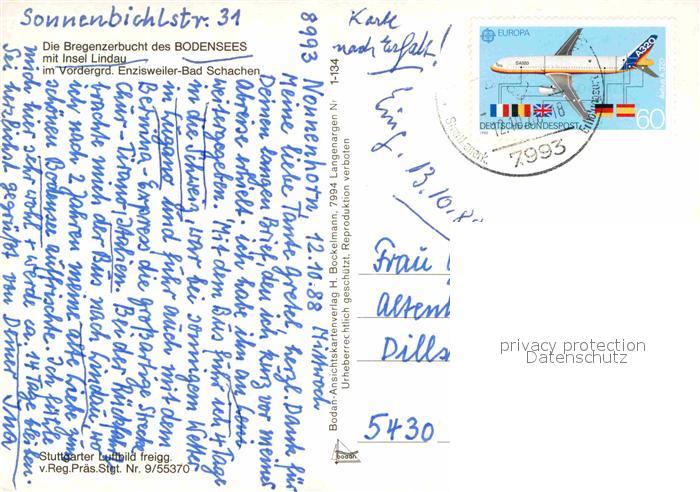 Sonnenbichlstr. 31
Die Bregenzerbucht des BODENSEES
mit Insel Lindau
im Vordergrd. Enzisweiler-Bad Schachen
8993 Nonnenhorn 12.10.88 Mittwoch
Meine liebe Tante Gretel, herzl. Dank für
Deinen lieben Brief, den ich kurz vor meiner
Abreise erhielt. Ich habe ihn am
aufgegeben. Mit dem Bus fuhr ich 4 Tage
in die Schweiz, war bei sonnigem Wetter
in und fuhr auch mit dem
Bernina-Express die großartige Strecke
Chur - Tirano/Italien. Bei der Rückfahrt
brachte mich der Bus nach Lindau, wo
ich nach 2 Jahren meine alte Liebe zum
schönen Bodensee auffrischte. Ich fühle
mich hier sehr wohl + werde ca. 14 Tage bleiben.
Sei herzlichst gegrüßt von Deiner
Stuttgarter Luftbild freigg.
v.Reg.Präs.Stgt. Nr. 9/55370
Bodan-Ansichtskartenverlag H. Bockelmann, 7994 Langenargen Nr. 1-134
Urheberrechtlich geschützt. Reproduktion verboten
bodan
Karte
nach Erhalt!
Eing. 13.10.8
EUROPA
A320
Airbus A 320
DEUTSCHE BUNDESPOST
60
7993
Frau
Alten
Dills
5430
privacy protection
Datenschutz